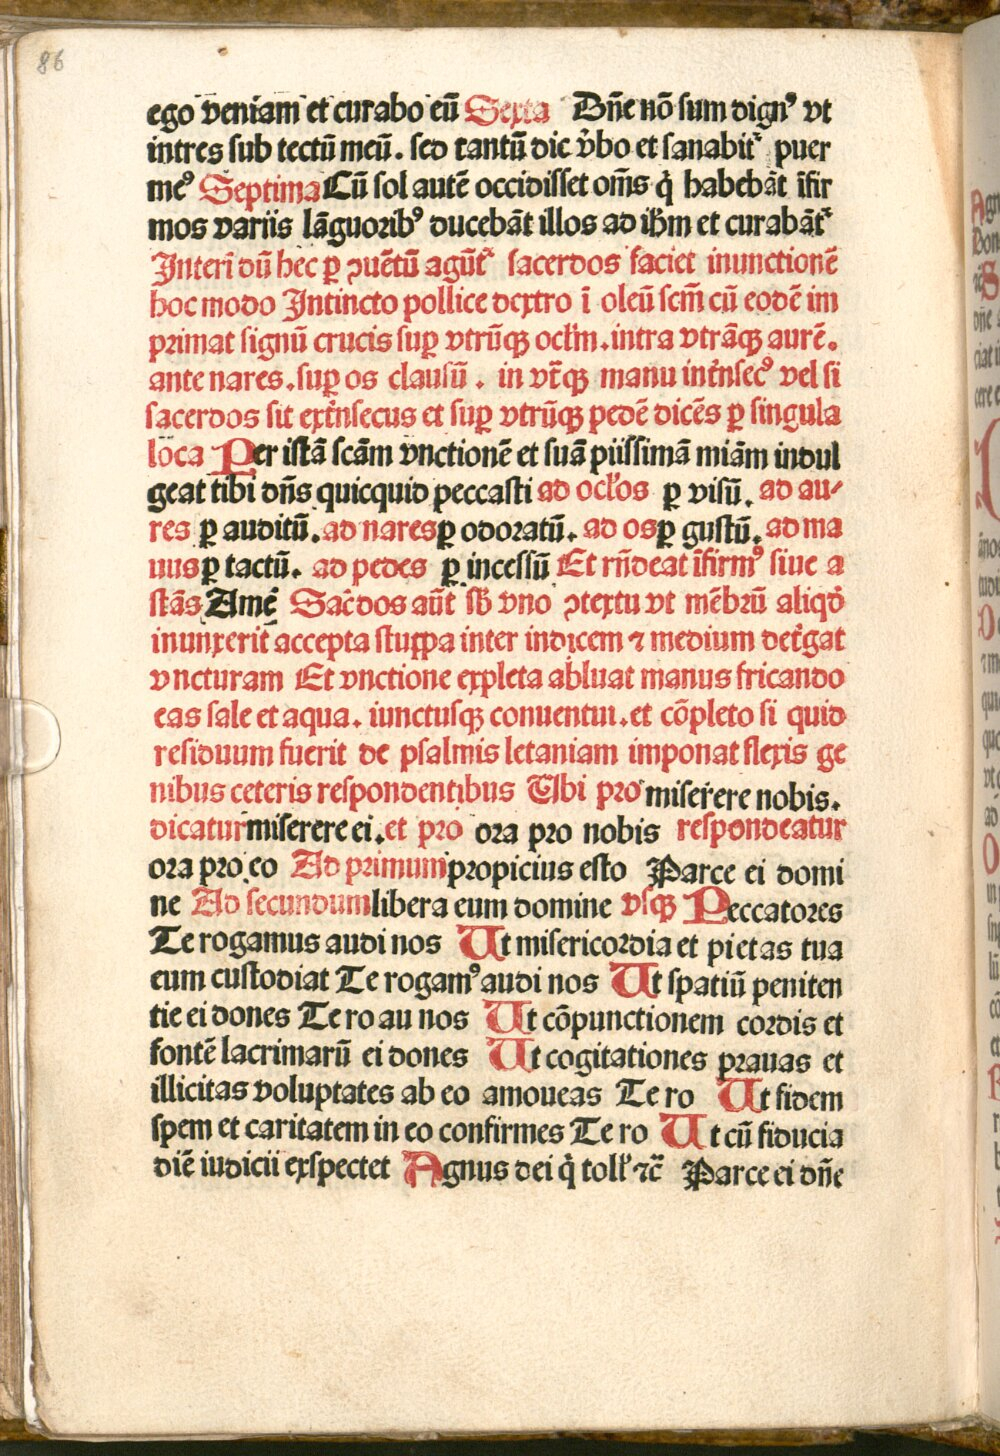 86
ego veniam et curabo eū Sexta Dn̄e nō sum dignꝰ vt
intres sub tectū meū. sed tantū dic v̓bo et sanabit᷑ puer
meꝰ Septima Cū sol autē occidisset om̄s q̇ habebāt īfir
mos variis lāguoribꝰ ducebāt illos ad ih̄m et curabāt᷑
Interī dū hec ꝑ ꝯuētū agūt᷑ sacerdos faciet inunctionē
hoc modo Intincto pollice dextro ī oleū scm̄ cū eodē im
primat signū crucis suꝑ vtrūqꝫ ocl̓m. intra vtrāqꝫ aurē.
ante nares. suꝑ os clausū. in vt̄qꝫ manu int̓nsecꝰ vel si
sacerdos sit ext̓nsecus et suꝑ vtrūqꝫ pedē dicēs ꝑ singula
loca Per istā scām vnctionē et suā piissimā miām indul
geat tibi dn̄s quicquid peccasti ad ocl̓os ꝑ visū. ad au⸗
res ꝑ auditū. ad nares ꝑ odoratū. ad os ꝑ gustū. ad ma
nus ꝑ tactū. ad pedes ꝑ incessū Et rn̄deat īfirmꝰ siue a
stās Amē Sac̄dos aūt sb̄ vno ꝯtextu vt mēbrū aliqd̓
inunxerit accepta stuppa inter indicem ⁊ medium det̓gat
vncturam Et vnctione expleta abluat manus fricando
eas sale et aqua. iunctusqꝫ conuentui. et cōpleto si quid
residuum fuerit de psalmis letaniam imponat flexis ge
nibus ceteris respondentibus Ubi pro miserere nobis.
dicatur miserere ei. et pro ora pro nobis respondeatur
ora pro eo Ad primum propicius esto Parce ei domi
ne Ad secundum libera eum domine vsqꝫ Peccatores
Te rogamus audi nos Ut misericordia et pietas tua
eum custodiat Te rogamꝰ audi nos Ut spatiū peniten
tie ei dones Te ro au nos Ut cōpunctionem cordis et
fontē lacrimarū ei dones Ut cogitationes prauas et
illicitas voluptates ab eo amoueas Te ro Ut fidem
spem et caritatem in eo confirmes Te ro Ut cū fiducia
diē iudicii exspectet Agnus dei q̇ toll̓ ⁊c̄ Parce ei dn̄e